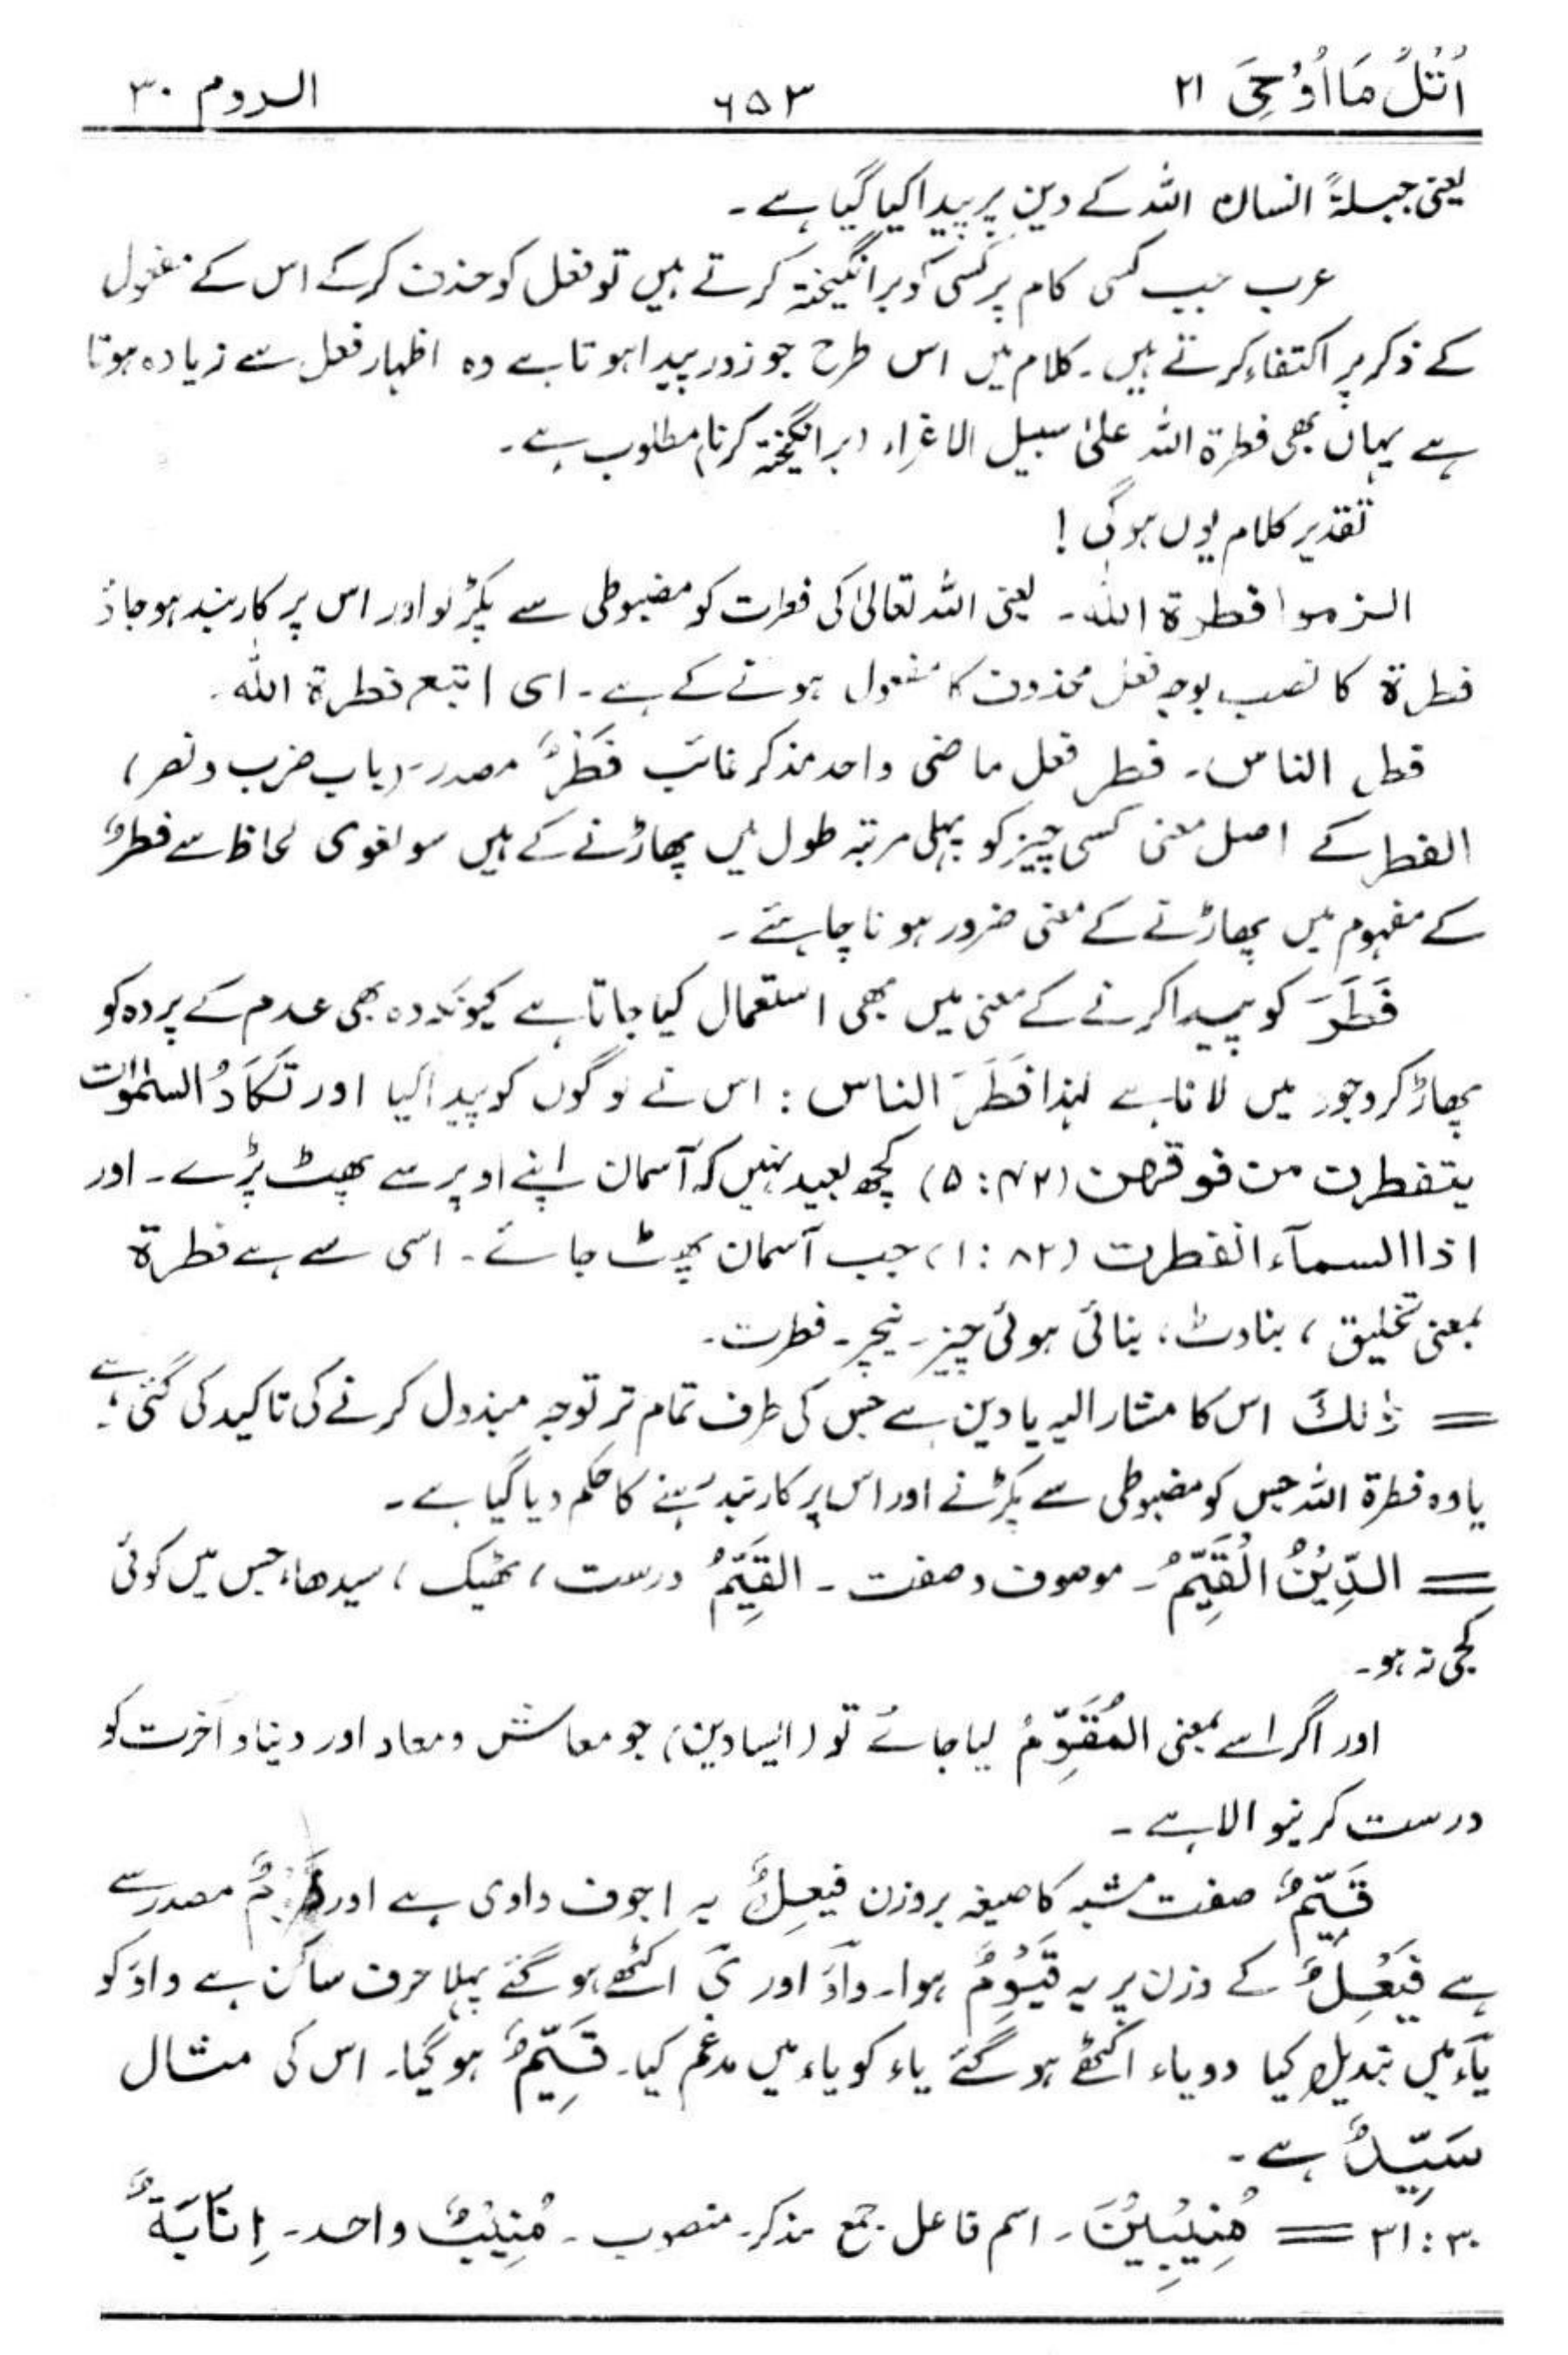 اُتْلُ مَا اُوْحِیَ ۲۱ ۶۵۳ الروم ۳۰
یعنی جبلۃً انسان اللہ کے دین پر پیدا کیا گیا ہے۔
عرب جب کسی کام پر کسی کو برانگیختہ کرتے ہیں تو فعل کو حذف کرکے اس کے مفعول
کے ذکر پر اکتفاء کرتے ہیں۔ کلام میں اس طرح جو زور پیدا ہوتا ہے وہ اظہار فعل سے زیادہ ہوتا
ہے یہاں بھی فطرۃ اللہ علیٰ سبیل الاغراء (برانگیختہ کرنا) مطلوب ہے۔
تقدیر کلام یوں ہوگی !
الزموا فطرۃ اللہ۔ یعنی اللہ تعالیٰ کی فطرت کو مضبوطی سے پکڑ لو اور اس پر کاربند ہو جاؤ
فطرۃ کا نصب بوجہ فعل محذوف کا مفعول ہونے کے ہے۔ ای اتبع فطرۃ اللہ۔
فطر الناس۔ فطر فعل ماضی واحد مذکر غائب فَطْرٌ مصدر۔ (باب ضرب و نصر)
الفطر کے اصل معنی کسی چیز کو پہلی مرتبہ طول میں پھاڑنے کے ہیں سو لغوی لحاظ سے فطرٌ
کے مفہوم میں پھاڑنے کے معنی ضرور ہونا چاہئے۔
فَطَرَ کو پیدا کرنے کے معنی میں بھی استعمال کیا جاتا ہے کیونکہ وہ بھی عدم کے پردہ کو
پھاڑ کر وجود میں لانا ہے لہٰذا فَطَرَ الناس : اس نے لوگوں کو پیدا کیا اور تَکَادُ السمٰوٰت
یتفطرن من فوقھن (۴۲:۵) کچھ بعید نہیں کہ آسمان اپنے اوپر سے پھٹ پڑے۔ اور
اذا السمآء انفطرت (۸۲ : ۱) جب آسمان پھٹ جائے۔ اسی سے ہے فطرۃ
بمعنی تخلیق، بناوٹ، بنائی ہوئی چیز۔ نیچر۔ فطرت۔
= ذٰلِكَ اس کا مشار الیہ یا دین ہے جس کی طرف تمام تر توجہ مبذول کرنے کی تاکید کی گئی ہے۔
یا وہ فطرۃ اللہ جس کو مضبوطی سے پکڑنے اور اس پر کاربند رہنے کا حکم دیا گیا ہے۔
= الدِّیْنُ الْقَیِّمُ۔ موصوف و صفت۔ القَیِّمُ درست، ٹھیک، سیدھا، جس میں کوئی
کجی نہ ہو۔
اور اگر اسے بمعنی المُقَوِّمُ لیا جائے تو (ایسا دین) جو معاش و معاد اور دنیا و آخرت کو
درست کرنیوالا ہے۔
قَیِّمٌ صفت مشبہ کا صیغہ بروزن فیعِلٌ یہ اجوف واوی ہے اور مصدر سے
ہے فَیْعِلٌ کے وزن پر یہ قَیْوِمٌ ہوا۔ واؤ اور یَ اکٹھے ہو گئے پہلا حرف ساکن ہے واؤ کو
یاء میں تبدیل کیا دو یاء اکٹھے ہو گئے یاء کو یاء میں مدغم کیا۔ قَیِّمٌ ہو گیا۔ اس کی مثال
سَیِّدٌ ہے۔
۳۰:۳۱ = مُنِیْبِیْنَ۔ اسم فاعل جمع مذکر۔ منصوب۔ مُنِیْبٌ واحد۔ اِنَابَۃٌ